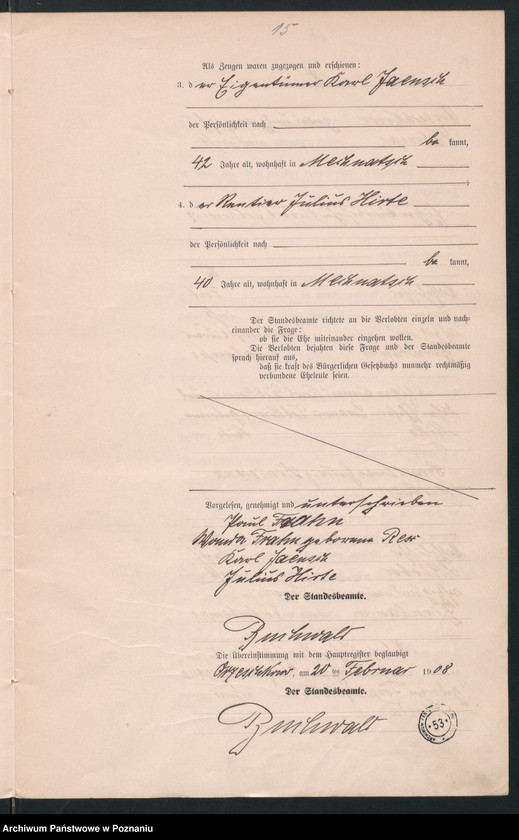 15
Als Zeugen waren zugezogen und erschienen:
3. der Eigentümer Karl Jaensch
der Persönlichkeit nach
be kannt,
42 Jahre alt, wohnhaft in
4. der Rentier Julius Hirte
der Persönlichkeit nach
be kannt,
40 Jahre alt, wohnhaft in
Der Standesbeamte richtete an die Verlobten einzeln und nach-
einander die Frage:
ob sie die Ehe miteinander eingehen wollen.
Die Verlobten bejahten diese Frage und der Standesbeamte
sprach hierauf aus,
daß sie kraft des Bürgerlichen Gesetzbuchs nunmehr rechtmäßig
verbundene Eheleute seien.
Vorgelesen, genehmigt und unterschrieben
Paul Frahn
Wanda Frahn geborene Rex
Karl Jaensch
Julius Hirte
Der Standesbeamte.
Buchwald
Die Übereinstimmung mit dem Hauptregister beglaubigt
am 20 ten Februar 1908
Der Standesbeamte.
Buchwald
53
Archiwum Państwowe w Poznaniu